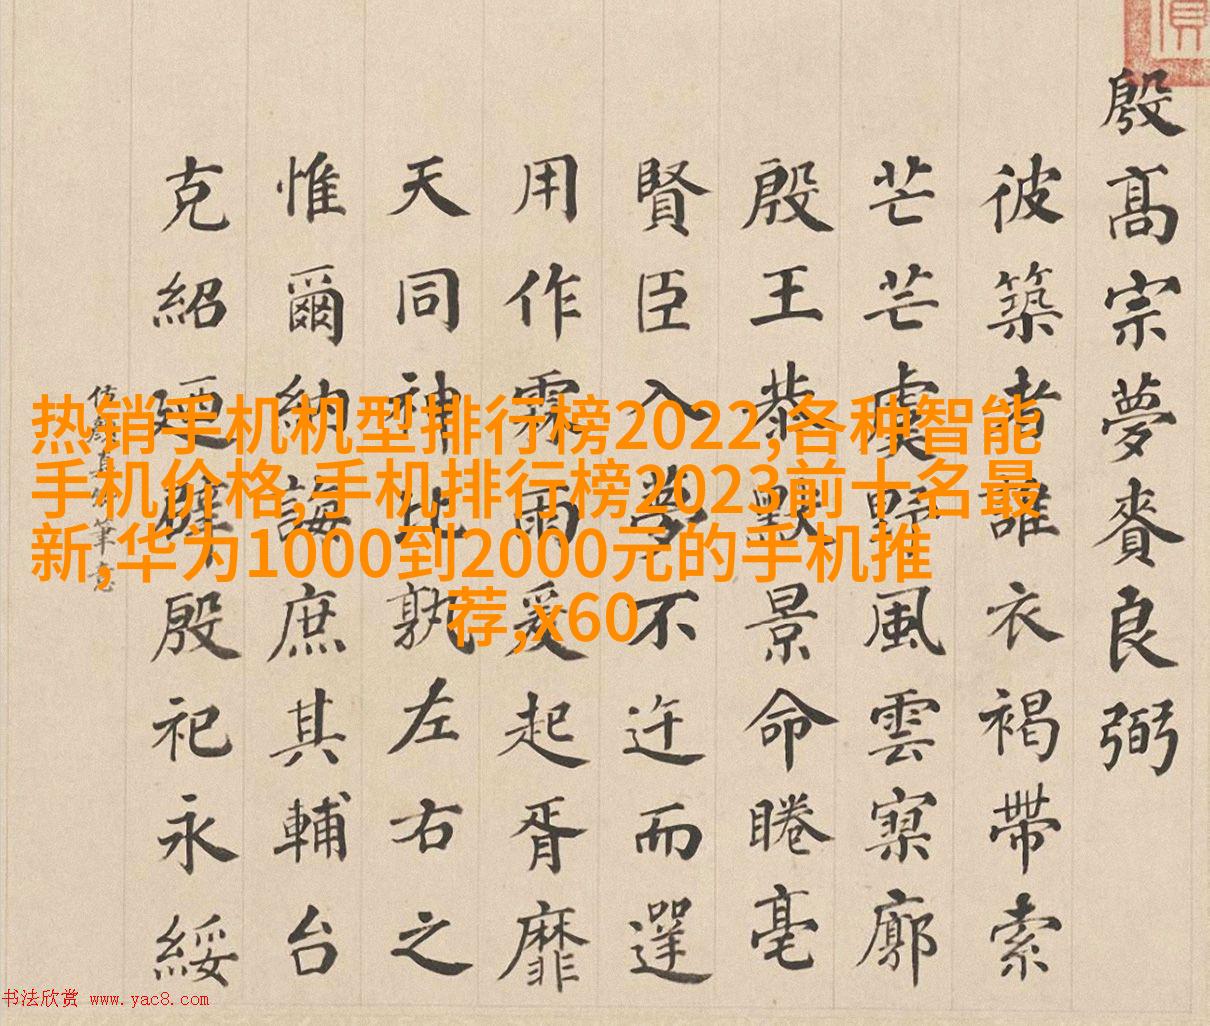 殷髙宗夢賚良弼
彼築者誰衣褐帶索
芒芒虞野風雲寥廓
殷王恭默景命睠亳
賢臣入夢不迕而遌
用作霖雨爰起胥靡
天同神比孰左右之
惟爾納誨庶其輔台
克紹廼辟殷祀永綏
筆意
热销手机机型排行榜2022,各种智能
手机价格,手机排行榜2023前十名最
新,华为1000到2000元的手机推
荐,x60
书法欣赏 www.yac8.com